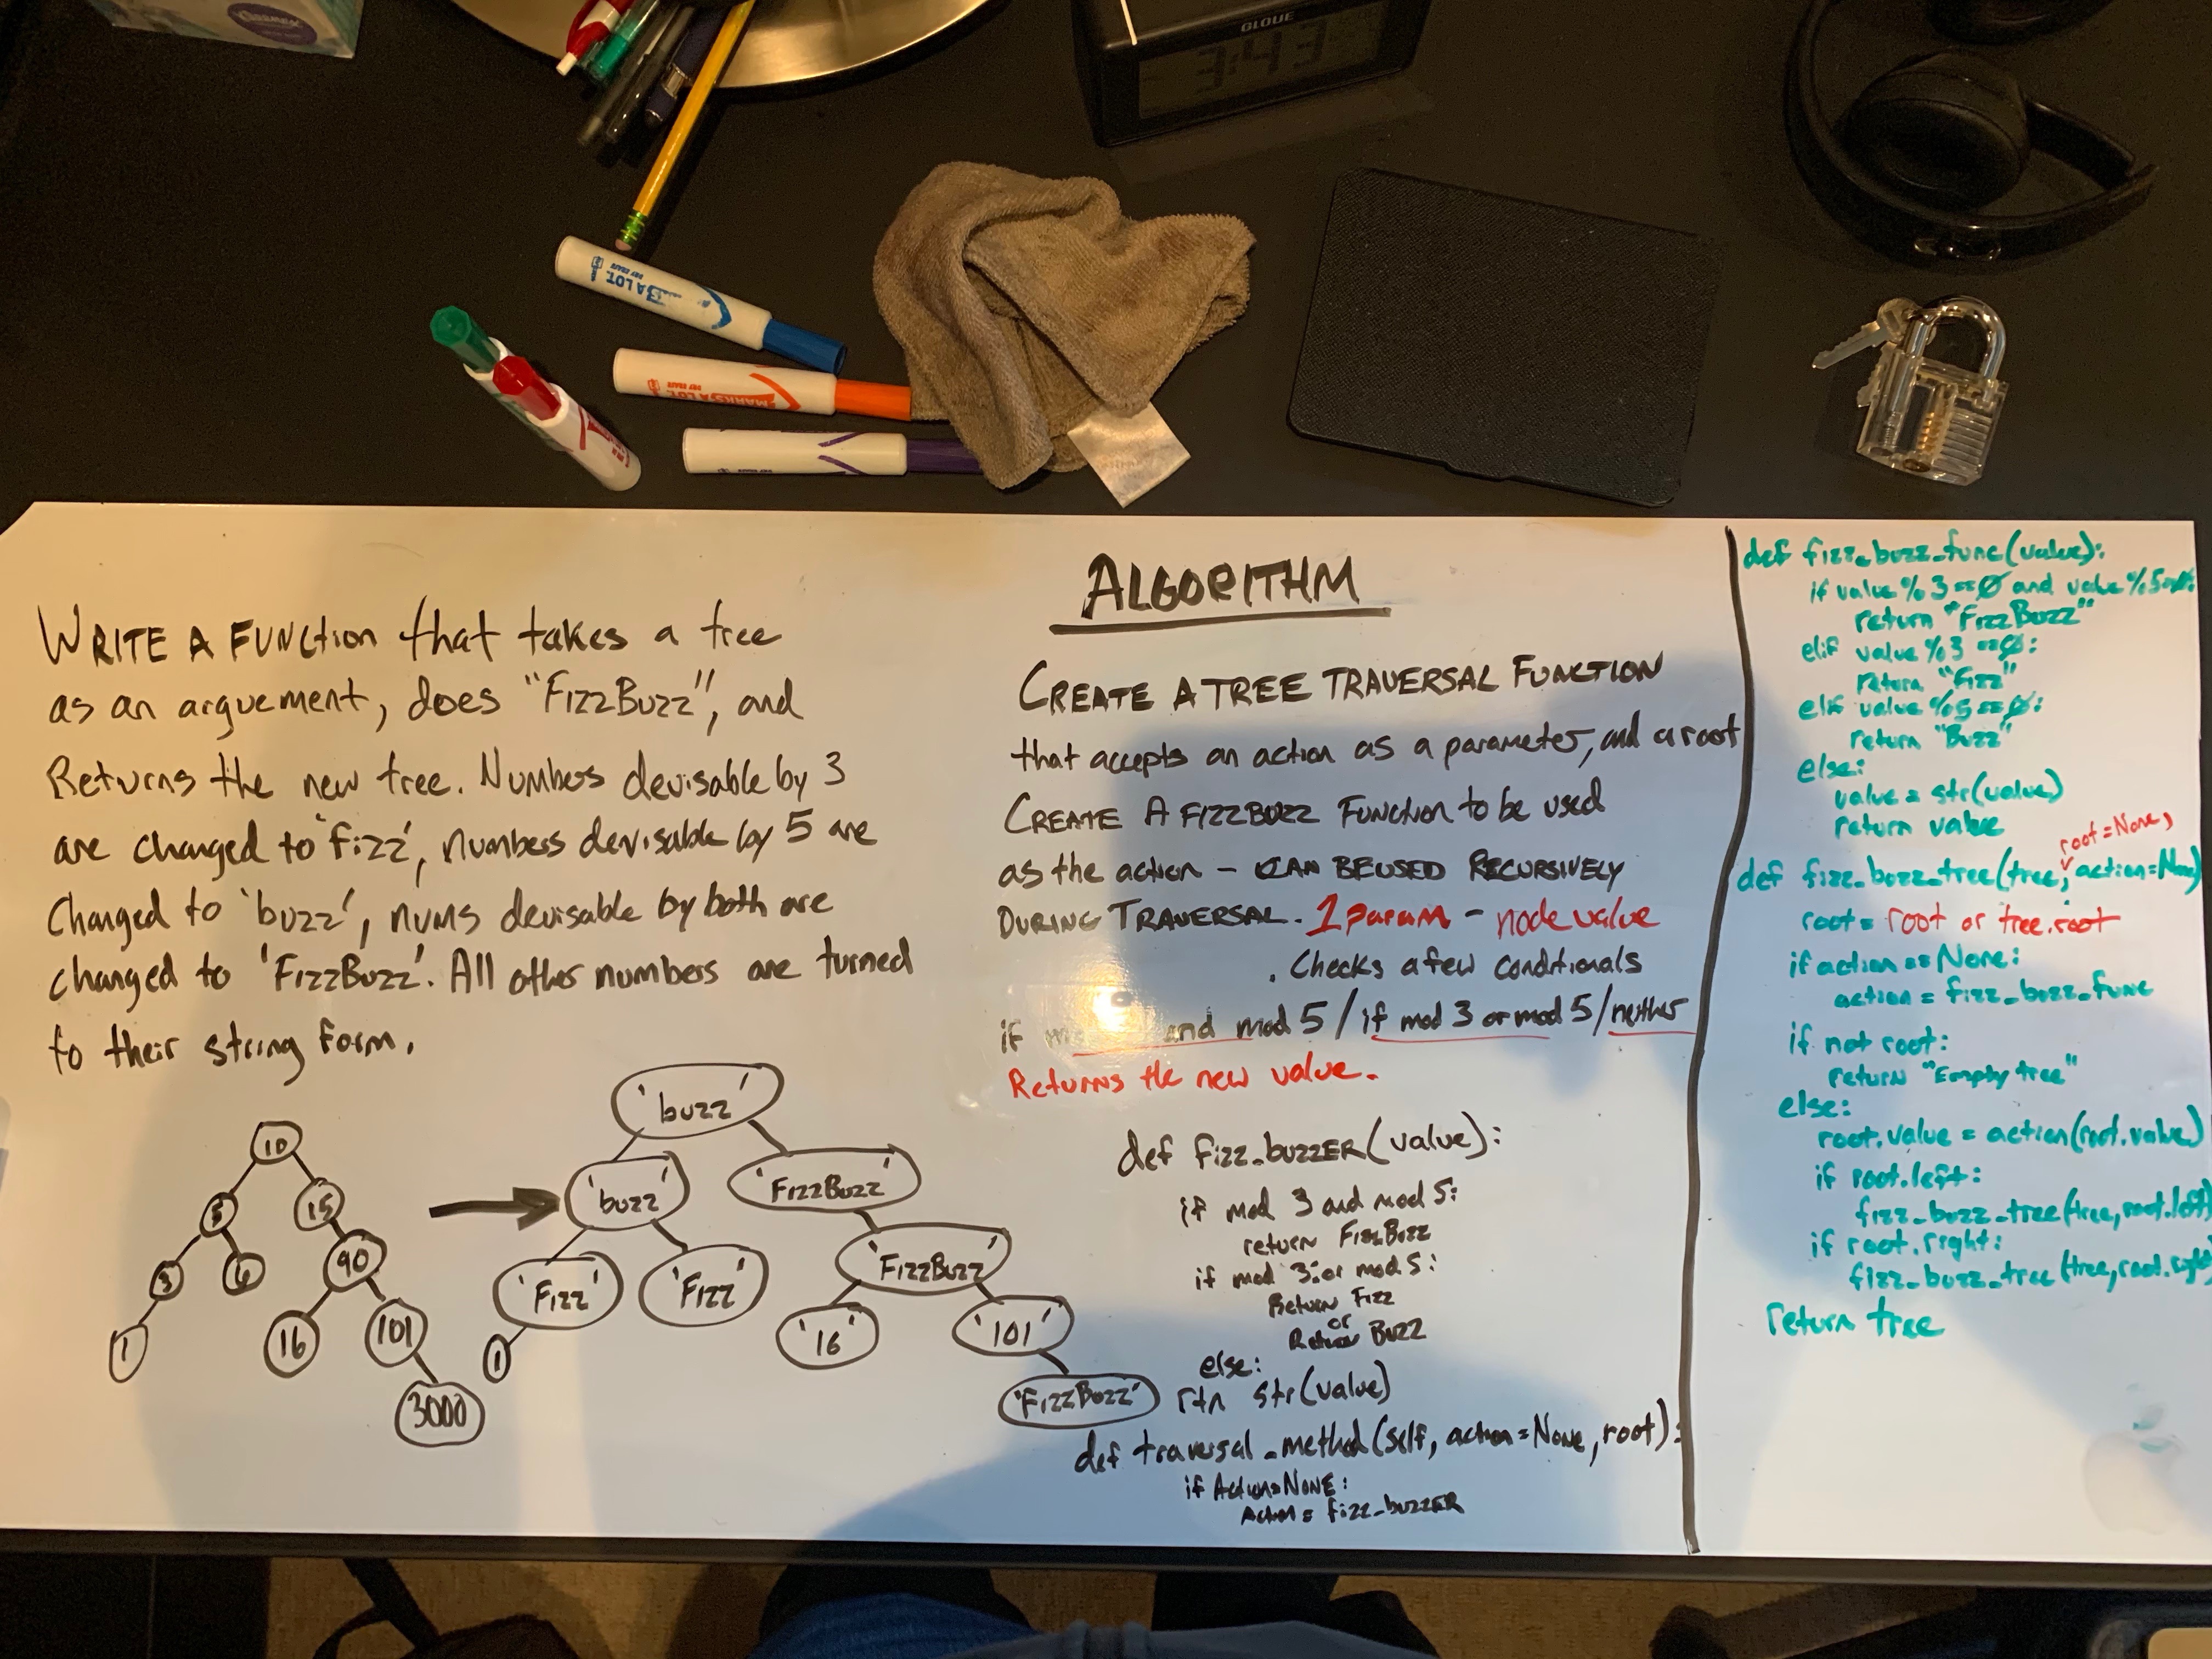 Kleenex
GLOUE
3:43
MARKS A LOT
WRITE A FUNCTION that takes a tree
as an arguement, does "FizzBuzz", and
Returns the new tree. Numbers devisable by 3
are changed to 'fizz', numbers devisable by 5 are
Changed to 'buzz', nums devisable by both are
changed to 'FizzBuzz'. All other numbers are turned
to their string form.
10
5
15
3
6
90
1
16
101
3000
'buzz'
'buzz'
'FizzBuzz'
'Fizz'
'Fizz'
'FizzBuzz'
1
'16'
'101'
'FizzBuzz'
ALGORITHM
CREATE A TREE TRAVERSAL FUNCTION
that accepts an action as a parameter, and a root
CREATE A FIZZBUZZ Function to be used
as the action - CAN BE USED RECURSIVELY
DURING TRAVERSAL. 1 param - node value
. Checks a few conditionals
if and mod 5 / if mod 3 or mod 5 / neither
Returns the new value.
def fizz_buzzER(value):
if mod 3 and mod 5:
return FizzBuzz
if mod 3: or mod 5:
Return Fizz
or
Return Buzz
else:
rtn str(value)
def traversal_method(self, action=None, root):
if Action=NONE:
Action = fizz_buzzER
def fizz_buzz_func(value):
if value % 3 == 0 and value % 5 == 0:
return "FizzBuzz"
elif value % 3 == 0:
return "Fizz"
elif value % 5 == 0:
return "Buzz"
else:
value = str(value)
return value
root=None,
def fizz_buzz_tree(tree, action=None)
root = root or tree.root
if action == None:
action = fizz_buzz_func
if not root:
return "Empty tree"
else:
root.value = action(root.value)
if root.left:
fizz_buzz_tree(tree, root.left)
if root.right:
fizz_buzz_tree(tree, root.right)
return tree